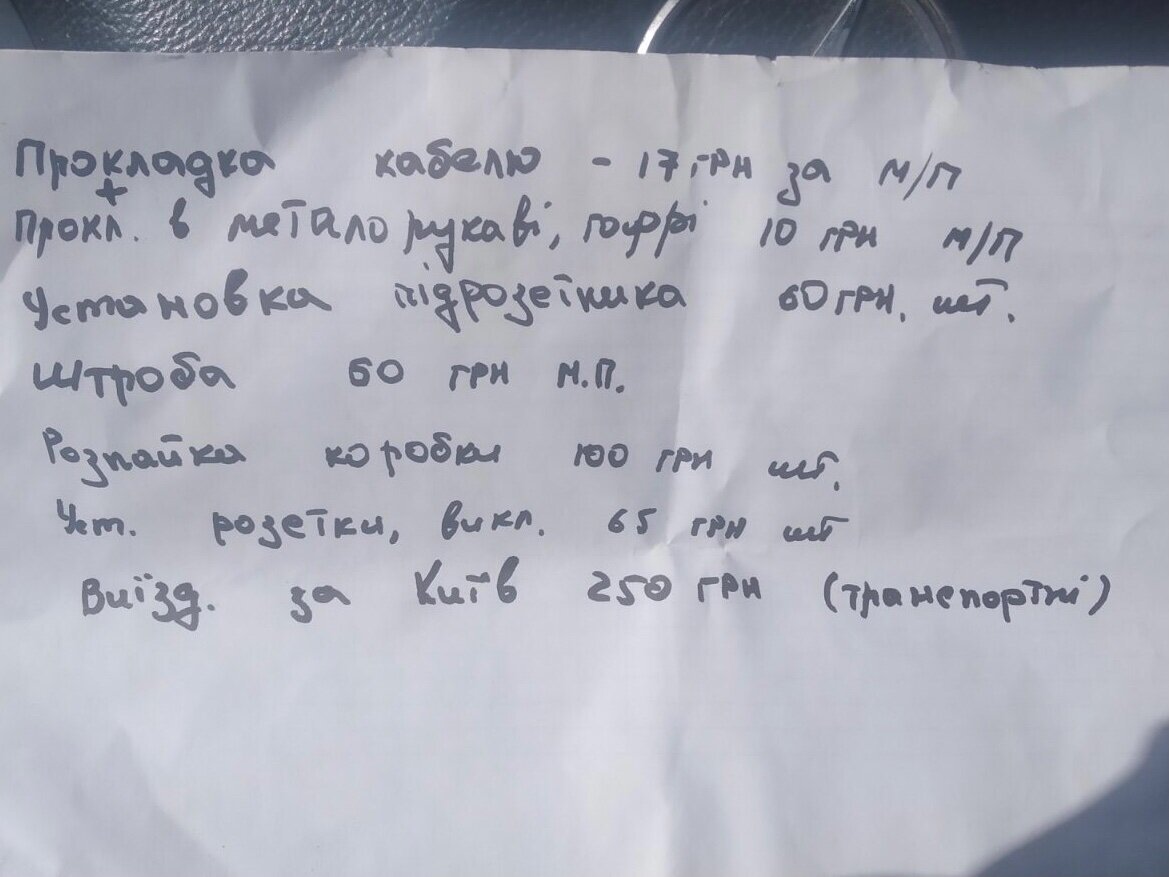 Прокладка кабелю - 17 грн за м/п
+
Прокл. в металорукаві, гофрі 10 грн м/п
Установка підрозетника 60 грн. шт.
Штроба 60 грн м.п.
Розпайка коробки 100 грн шт.
Уст. розетки, викл. 65 грн шт
Виїзд. за Київ 250 грн (транспортні)